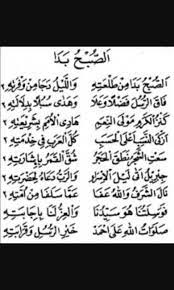 اَلصُّبْحُ بَدَا
اَلصُّبْحُ بَدَا مِنْ طَلْعَتِهِ وَاللَّيْلُ دَجَا مِنْ وَفْرَتِهِ ٢
فَاقَ الرُّسُلَ فَضْلًا وَعُلَا وَهَدَى سُبُلًا بِدَلَالَتِهِ ٢
كَنْزُ الْكَرَمِ مَوْلَى النِّعَمِ هَادِى الْأُمَمِ بِشَرِيْعَتِهِ ٢
اَزْكَى النَّسَبِ اَعْلَى الْحَسَبِ كُلُّ الْعَرَبِ فِى خِدْمَتِهِ ٢
سَعَتِ الشَّجَرُ نَطَقَ الْحَجَرُ شُقَّ الْقَمَرُ بِاِشَارَتِهِ ٢
جِبْرِيْلُ اَتَى لَيْلَةَ الْاِسْرَا وَالرَّبُّ دَعَاهُ لِحَضْرَتِهِ ٢
نَالَ الشَّرَفَ وَاللهُ عَفَا عَمَّا سَلَفَا مِنْ اُمَّتِهِ ٢
فَوَسِيْلَتُنَا هُوَ سَيِّدُنَا وَالْعِزُّ لَنَا بِاِجَابَتِهِ ٢
صَلَوَاتُ اللهِ عَلَى اَحْمَدَ خَيْرِ الرُّسُلِ وَقَرَابَتِهِ